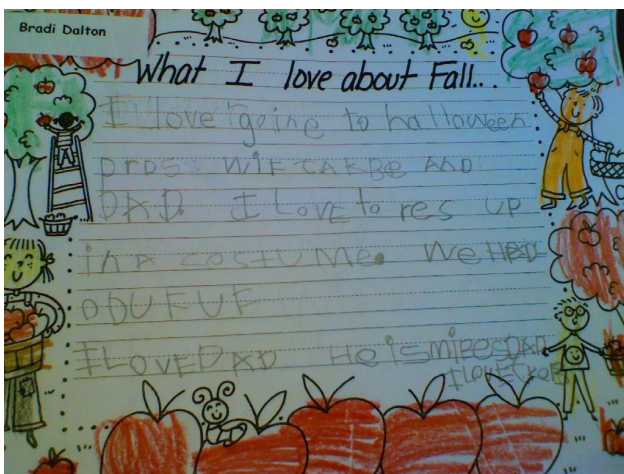 Bradi Dalton
What I love about Fall...
I love going to halloween
prps WiF CAKBe AND
DAD. I Love to res up
in A COSTUMe. We HAD
I LOVE DAD He is mi BesDAD
I LOVE